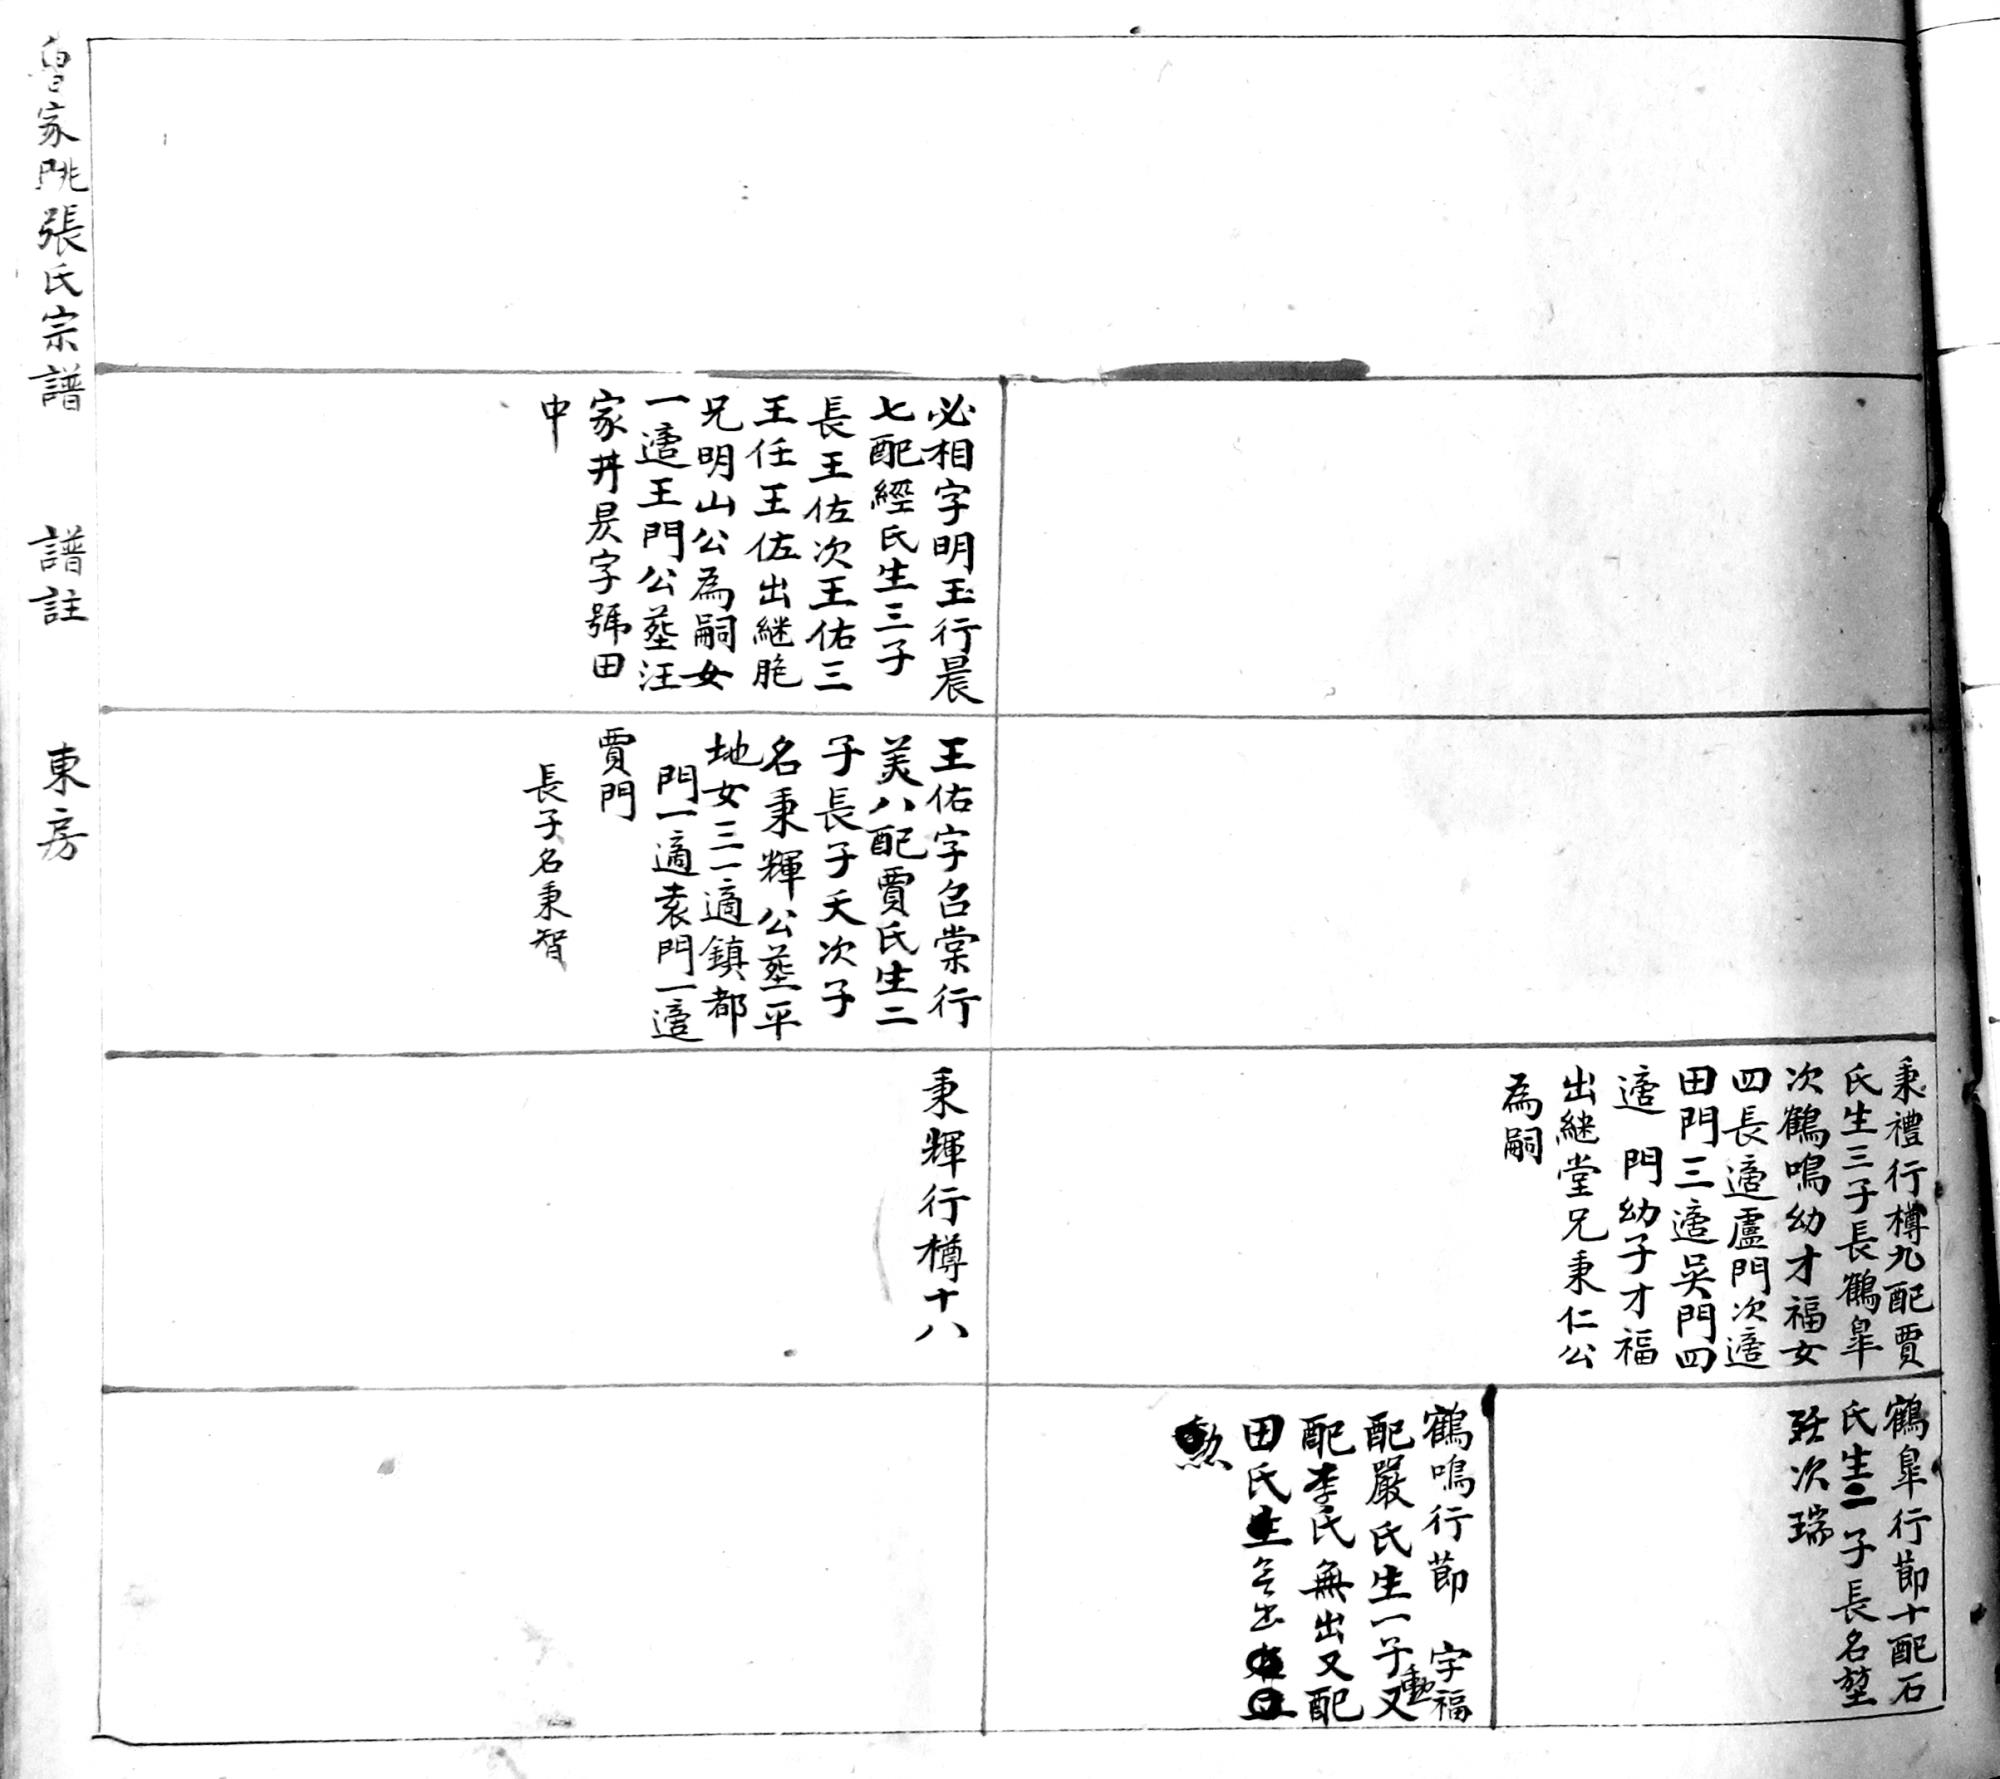 秉禮行樽九配賈
氏生三子長鶴皐
次鶴鳴幼才福女
四長適盧門次適
田門三適吳門四
適 門幼子才福
出継堂兄秉仁公
為嗣
鶴皐行節十配石
氏生二子長名堃
次瑞
鶴鳴行節 字福
配嚴氏生一子勳又
配李氏無出又配
田氏生无出
必相字明玉行晨
七配經氏生三子
長王佐次王佑三
王任王佐出継胞
兄明山公為嗣女
一適王門公塟汪
家井昃字號田
中
王佑字召棠行
美八配賈氏生二
子長子夭次子
名秉輝公塟平
地女三一適鎮都
門一適袁門一適
賈門
長子名秉智
秉輝行樽十八
魯家㫤張氏宗譜 譜註 東房